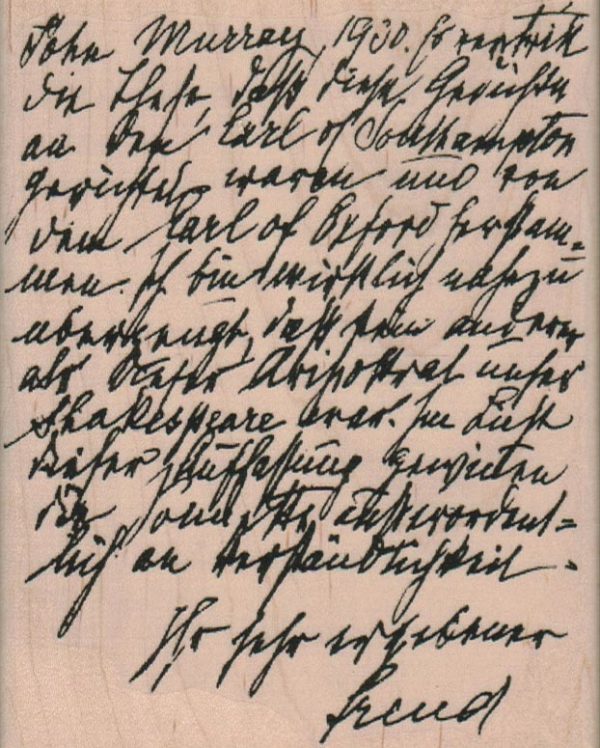 John Murray, 1930. Er vertritt
die These, daß diese Gedichte
an den Earl of Southampton
gerichtet waren und von
dem Earl of Oxford herstam=
men. Ich bin wirklich nahezu
überzeugt, daß kein anderer
als dieser Aristokrat unser
Shakespeare war. Im Licht
dieser Auffassung gewinnen
die Sonette außerordent=
lich an Verständlichkeit.
Ihr sehr ergebener
Freud